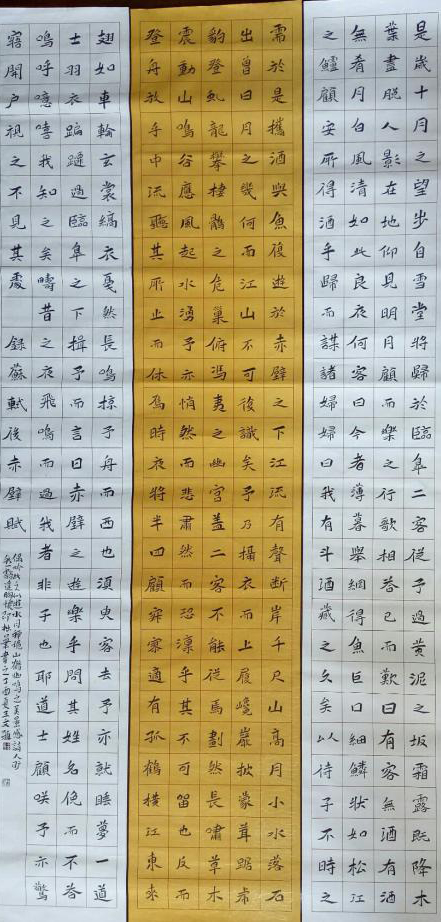 是歲十月之望步自雪堂將歸於臨皋二客從予過黃泥之坂霜露既降木
葉盡脫人影在地仰見明月顧而樂之行歌相答已而歎曰有客無酒有酒
無肴月白風清如此良夜何客曰今者薄暮舉網得魚巨口細鱗狀如松江
之鱸顧安所得酒乎歸而謀諸婦婦曰我有斗酒藏之久矣以待子不時之
需於是攜酒與魚復遊於赤壁之下江流有聲断岸千尺山高月小水落石
出曾日月之幾何而江山不可復識矣予乃攝衣而上履巉巖披蒙茸踞虎
豹登虬龍攀棲鶻之危巢俯馮夷之幽宮盖二客不能從焉劃然長嘯草木
震動山鳴谷應風起水湧予亦悄然而悲肅然而恐凜乎其不可留也反而
登舟放乎中流聽其所止而休焉時夜將半四顧寂寥適有孤鶴橫江東來
翅如車輪玄裳縞衣戛然長鳴掠予舟而西也須臾客去予亦就睡夢一道
士羽衣蹁躚過臨皋之下揖予而言曰赤壁之遊樂乎問其姓名俛而不答
嗚呼噫嘻我知之矣疇昔之夜飛鳴而過我者非子也耶道士顧咲予亦驚
寤開戶視之不見其處 錄蘇軾後赤壁賦